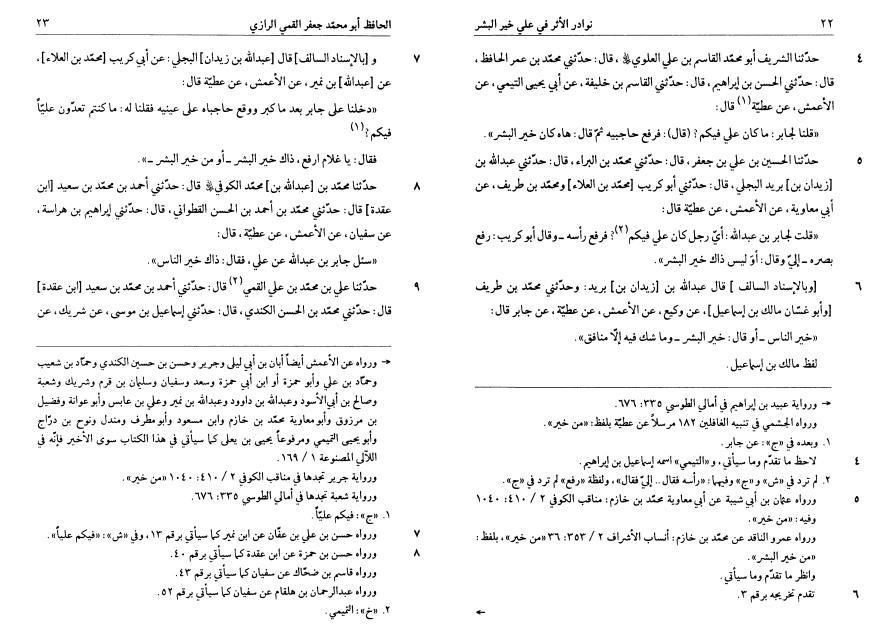 ٢٢ نوادر الأثر في علي خير البشر
٤ حدّثنا الشريف أبو محمّد القاسم بن علي العلوي ، قال: حدّثني محمّد بن عمر الحافظ،
قال: حدّثني الحسن بن إبراهيم، قال: حدّثني القاسم بن خليفة، عن أبي يحيى التيمي، عن
الأعمش، عن عطيّة(١) قال:
«قلنا لجابر: ما كان علي فيكم؟ (قال): فرفع حاجبيه ثمّ قال: هاه كان خير البشر».
٥ حدّثنا الحسين بن علي بن جعفر، قال: حدّثني محمّد بن البراء، قال: حدّثني عبدالله بن
[زيدان بن] بريد البجلي، قال: حدّثني أبوكريب [محمّد بن العلاء] ومحمّد بن طريف، عن
أبي معاوية، عن الأعمش، عن عطيّة قال:
«قلت لجابر بن عبدالله: أيّ رجل كان علي فيكم(٢)؟ فرفع رأسه ـ وقال أبوكريب: رفع
بصره ـ إليّ وقال: أوَ ليس ذاك خير البشر».
٦ [وبالإسناد السالف] قال عبدالله بن [زيدان بن] بريد: وحدّثني محمّد بن طريف
[وأبو غسّان مالك بن إسماعيل]، عن وكيع، عن الأعمش، عن عطيّة، عن جابر قال:
«خير الناس ـ أو قال: خير البشر ـ وما شك فيه إلّا منافق».
لفظ مالك بن إسماعيل.
→ ورواية عبيد بن إبراهيم في أمالي الطوسي ٣٣٥: ٦٧٦.
ورواه الجشمي في تنبيه الغافلين ١٨٢ مرسلاً عن عطيّة بلفظ: «من خير».
١. وبعده في «ج»: عن جابر.
٤ لاحظ ما تقدّم وما سيأتي، و«التيمي» اسمه إسماعيل بن إبراهيم.
٢. لم ترد في «ش» و«ج» وفيهما: «رأسه فقال.. إليّ فقال»، ولفظة «رفع» لم ترد في «ج».
٥ ورواه عثمان بن أبي شيبة عن أبي معاوية محمّد بن خازم: مناقب الكوفي ٢ / ٤١٠: ١٠٤٠
وفيه: «من خير».
ورواه عمرو الناقد عن محمّد بن خازم: أنساب الأشراف ٢ / ٣٥٣: ٣٦ «من خير»، بلفظ:
«من خير البشر».
وانظر ما تقدّم وما سيأتي.
٦ تقدم تخريجه برقم ٣.
←
الحافظ أبو محمّد جعفر القمي الرازي ٢٣
٧ و [بالإسناد السالف] قال [عبدالله بن زيدان] البجلي: عن أبي كريب [محمّد بن العلاء]،
عن [عبدالله] بن نمير، عن الأعمش، عن عطيّة قال:
«دخلنا على جابر بعد ما كبر ووقع حاجباه على عينيه فقلنا له: ما كنتم تعدّون عليّاً
فيكم؟(١)
فقال: يا غلام ارفع، ذاك خير البشر ـ أو من خير البشر ـ».
٨ حدّثنا محمّد بن [عبدالله بن] محمّد الكوفي قال: حدّثني أحمد بن محمّد بن سعيد [ابن
عقدة] قال: حدّثني محمّد بن أحمد بن الحسن القطواني، قال: حدّثني إبراهيم بن هراسة،
عن سفيان، عن الأعمش، عن عطيّة، قال:
«سئل جابر بن عبدالله عن علي، فقال: ذاك خير الناس».
٩ حدّثنا علي بن محمّد بن علي القمي(٢) قال: حدّثني أحمد بن محمّد بن سعيد [ابن عقدة]
قال: حدّثني محمّد بن الحسن الكندي، قال: حدّثني إسماعيل بن موسى، عن شريك، عن
→ ورواه عن الأعمش أيضاً أبان بن أبي ليلى وجرير وحسن بن حسين الكندي وحمّاد بن شعيب
وحمّاد بن علي وأبو حمزة أو ابن أبي حمزة وسعد وسفيان وسليمان بن قرم وشريك وشعبة
وصالح بن أبي‌الأسود وعبدالله بن داوود وعبدالله بن نمير وعلي بن عابس وأبو عوانة وفضيل
بن مرزوق وأبو معاوية محمّد بن خازم وابن مسعود وأبو مطرف ومندل ونوح بن درّاج
وأبو يحيى التميمي ومرفوعاً يحيى بن يعلى كما سيأتي في هذا الكتاب سوى الأخير فإنّه في
اللآلي المصنوعة ١ / ١٦٩.
ورواية جرير تجدها في مناقب الكوفي ٢ / ٤١٠: ١٠٤٠ «من خير».
ورواية شعبة تجدها في أمالي الطوسي ٣٣٥: ٦٧٦.
١. «ج»: فيكم عليّاً.
٧ ورواه حسن بن علي بن عفّان عن ابن نمير كما سيأتي برقم ١٣، وفي «ش»: «فيكم علياً».
٨ ورواه حسن بن حمزة عن ابن عقدة كما سيأتي برقم ٤٠.
ورواه قاسم بن ضحّاك عن سفيان كما سيأتي برقم ٤٣.
ورواه عبدالرحمان بن هلقام عن سفيان كما سيأتي برقم ٥٢.
٢. «خ»: التميمي.